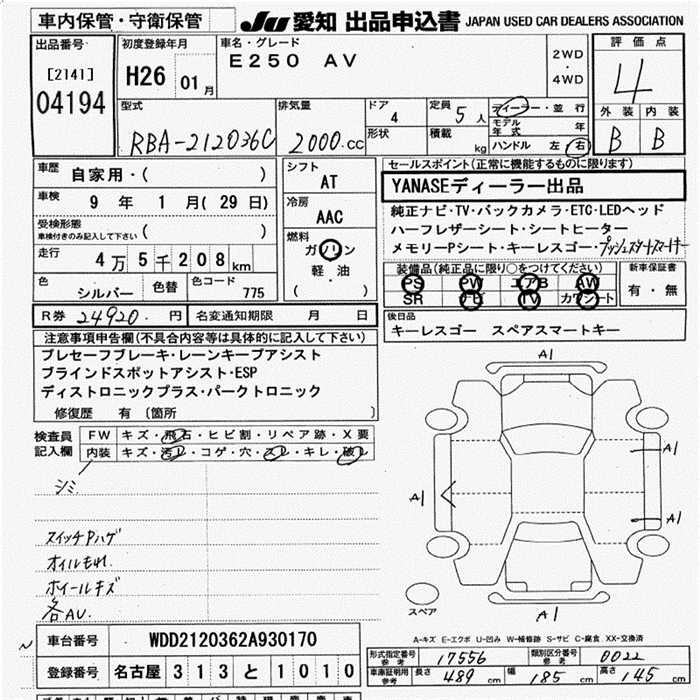 車内保管・守衛保管
JU 愛知 出品申込書 JAPAN USED CAR DEALERS ASSOCIATION
出品番号
[2141]
04194
初度登録年月
H26 01月
車名・グレード
E250 AV
2WD
・
4WD
評価点
4
外装 内装
B B
型式
RBA-212036C
排気量
2000.cc
ドア
4
形状
定員
5人
積載
kg
ディーラー・並行
モデル年式 年
ハンドル 左 右
車歴
自家用・( )
車検
9年 1月(29日)
受検形態
車検付きのみ記入して下さい ( )
走行
4万5千208km
色
シルバー
色替
色コード
775
シフト
AT
冷房
AAC
燃料
ガソリン
軽・油
( )
セールスポイント(正常に機能するものに限ります)
YANASEディーラー出品
純正ナビ・TV・バックカメラ・ETC・LEDヘッド
ハーフレザーシート・シートヒーター
メモリーPシート・キーレスゴー・プッシュスタートスマートキー
装備品(純正品に限り○をつけてください)
PS PW エアB AW
SR ナビ TV カワシート
新車保証書
有・無
後日品
キーレスゴー スペアスマートキー
R券 24920.円
名変通知期限 月 日
注意事項申告欄(不具合内容等は具体的に記入して下さい)
プレセーフブレーキ・レーンキープアシスト
ブラインドスポットアシスト・ESP
ディストロニックプラス・パークトロニック
修復歴 有(箇所 )
検査員記入欄
FW キズ・飛石・ヒビ割・リペア跡・X要
内装 キズ・汚レ・コゲ・穴・スレ・キレ・破レ
シミ
スイッチPハゲ
オイルもれ.
ホイールキズ
各AU.
A1
A1
A1
A1
A1
スペア
A-キズ E-エクボ U-凹み W-補修跡 S-サビ C-腐食 XX-交換済
車台番号 WDD2120362A930170
登録番号 名古屋 313 と 1010
形式指定番号 参考 17556
類別区分番号 参考 0022
車庫証明用 参考 長さ 489cm 幅 185cm 高さ 145cm